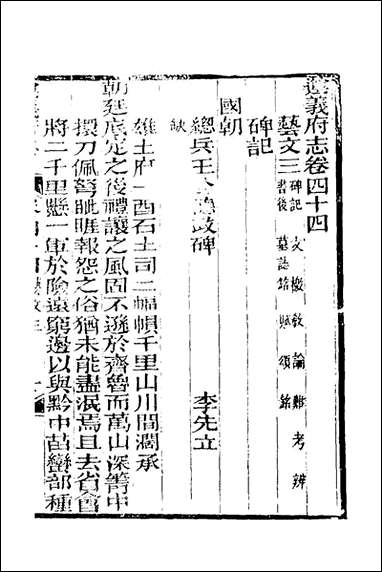 遵義府志卷四十四
藝文三 碑記 文 檄 教 論 難 考 辨
書後 墓誌銘 賦 頌 銘
碑記
國朝
總兵王公德政碑 李先立
缺
雄土府一酋石土司二幅幀千里山川間濶承
朝廷底定之後禮讓之風固不遜於齊魯而萬山深箐中
擐刀佩弩眦睚報怨之俗猶未能盡泯焉且去省會
將二千里懸一軍於險遠窮邊以與黔中苗蠻部種